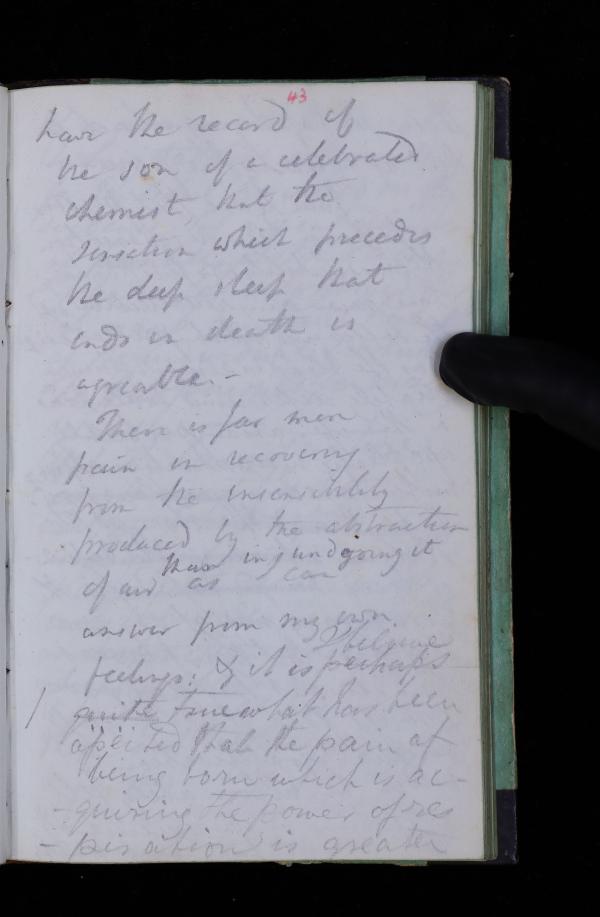 43
have the record of
the son of a celebrated
chemist, that the
sensation which precedes
the deep sleep that
ends in death is
agreable. -
There is far more
pain in recovering
from the insensibility
produced by the abstraction
than in undgoing it
of air as I can
answer from my own
feelings: & it is perhaps
I believe
quite true what has been
asserted that the pain of
being born which is ac-
-quiring the power of res
-piration is greater